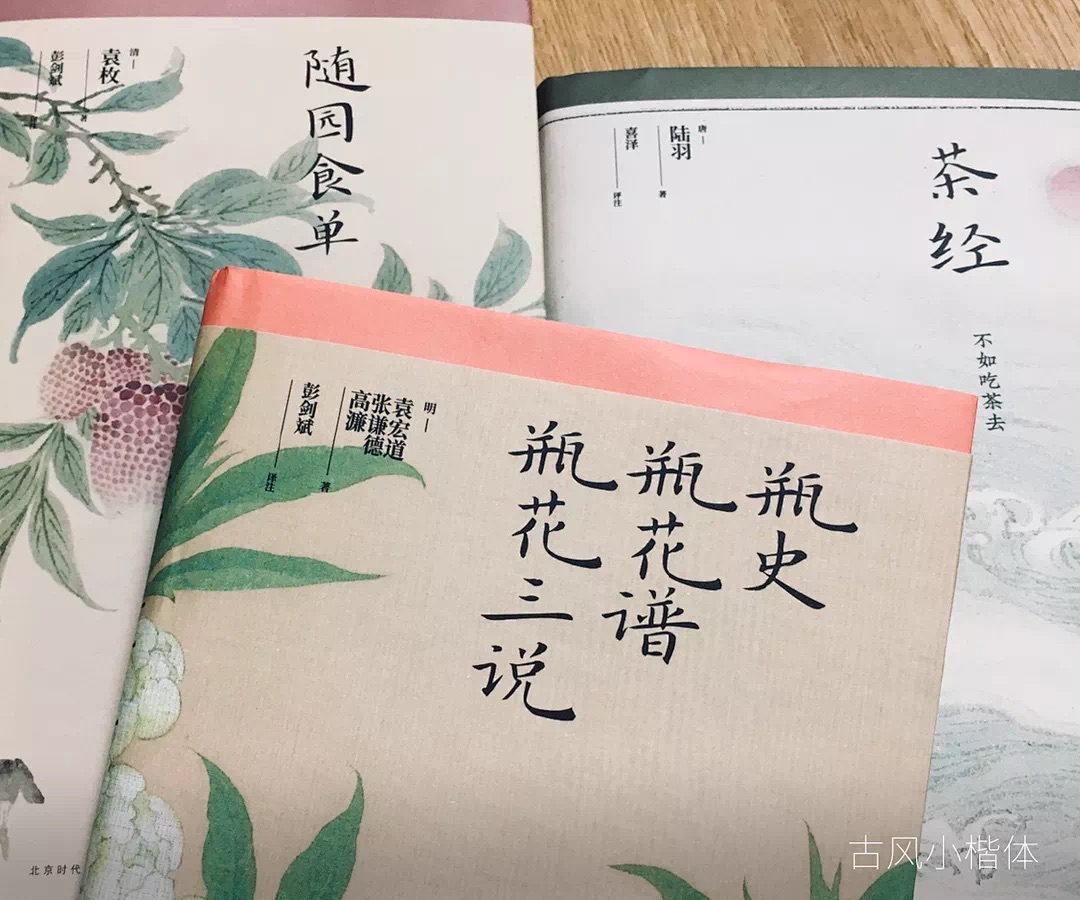 随园食单
清
袁枚
著
彭剑斌
北京时代
茶经
不如吃茶去
唐
陆羽
著
喜泽
译注
瓶史
瓶花谱
瓶花三说
明
袁宏道
张谦德
高濂
著
彭剑斌
译注
古风小楷体